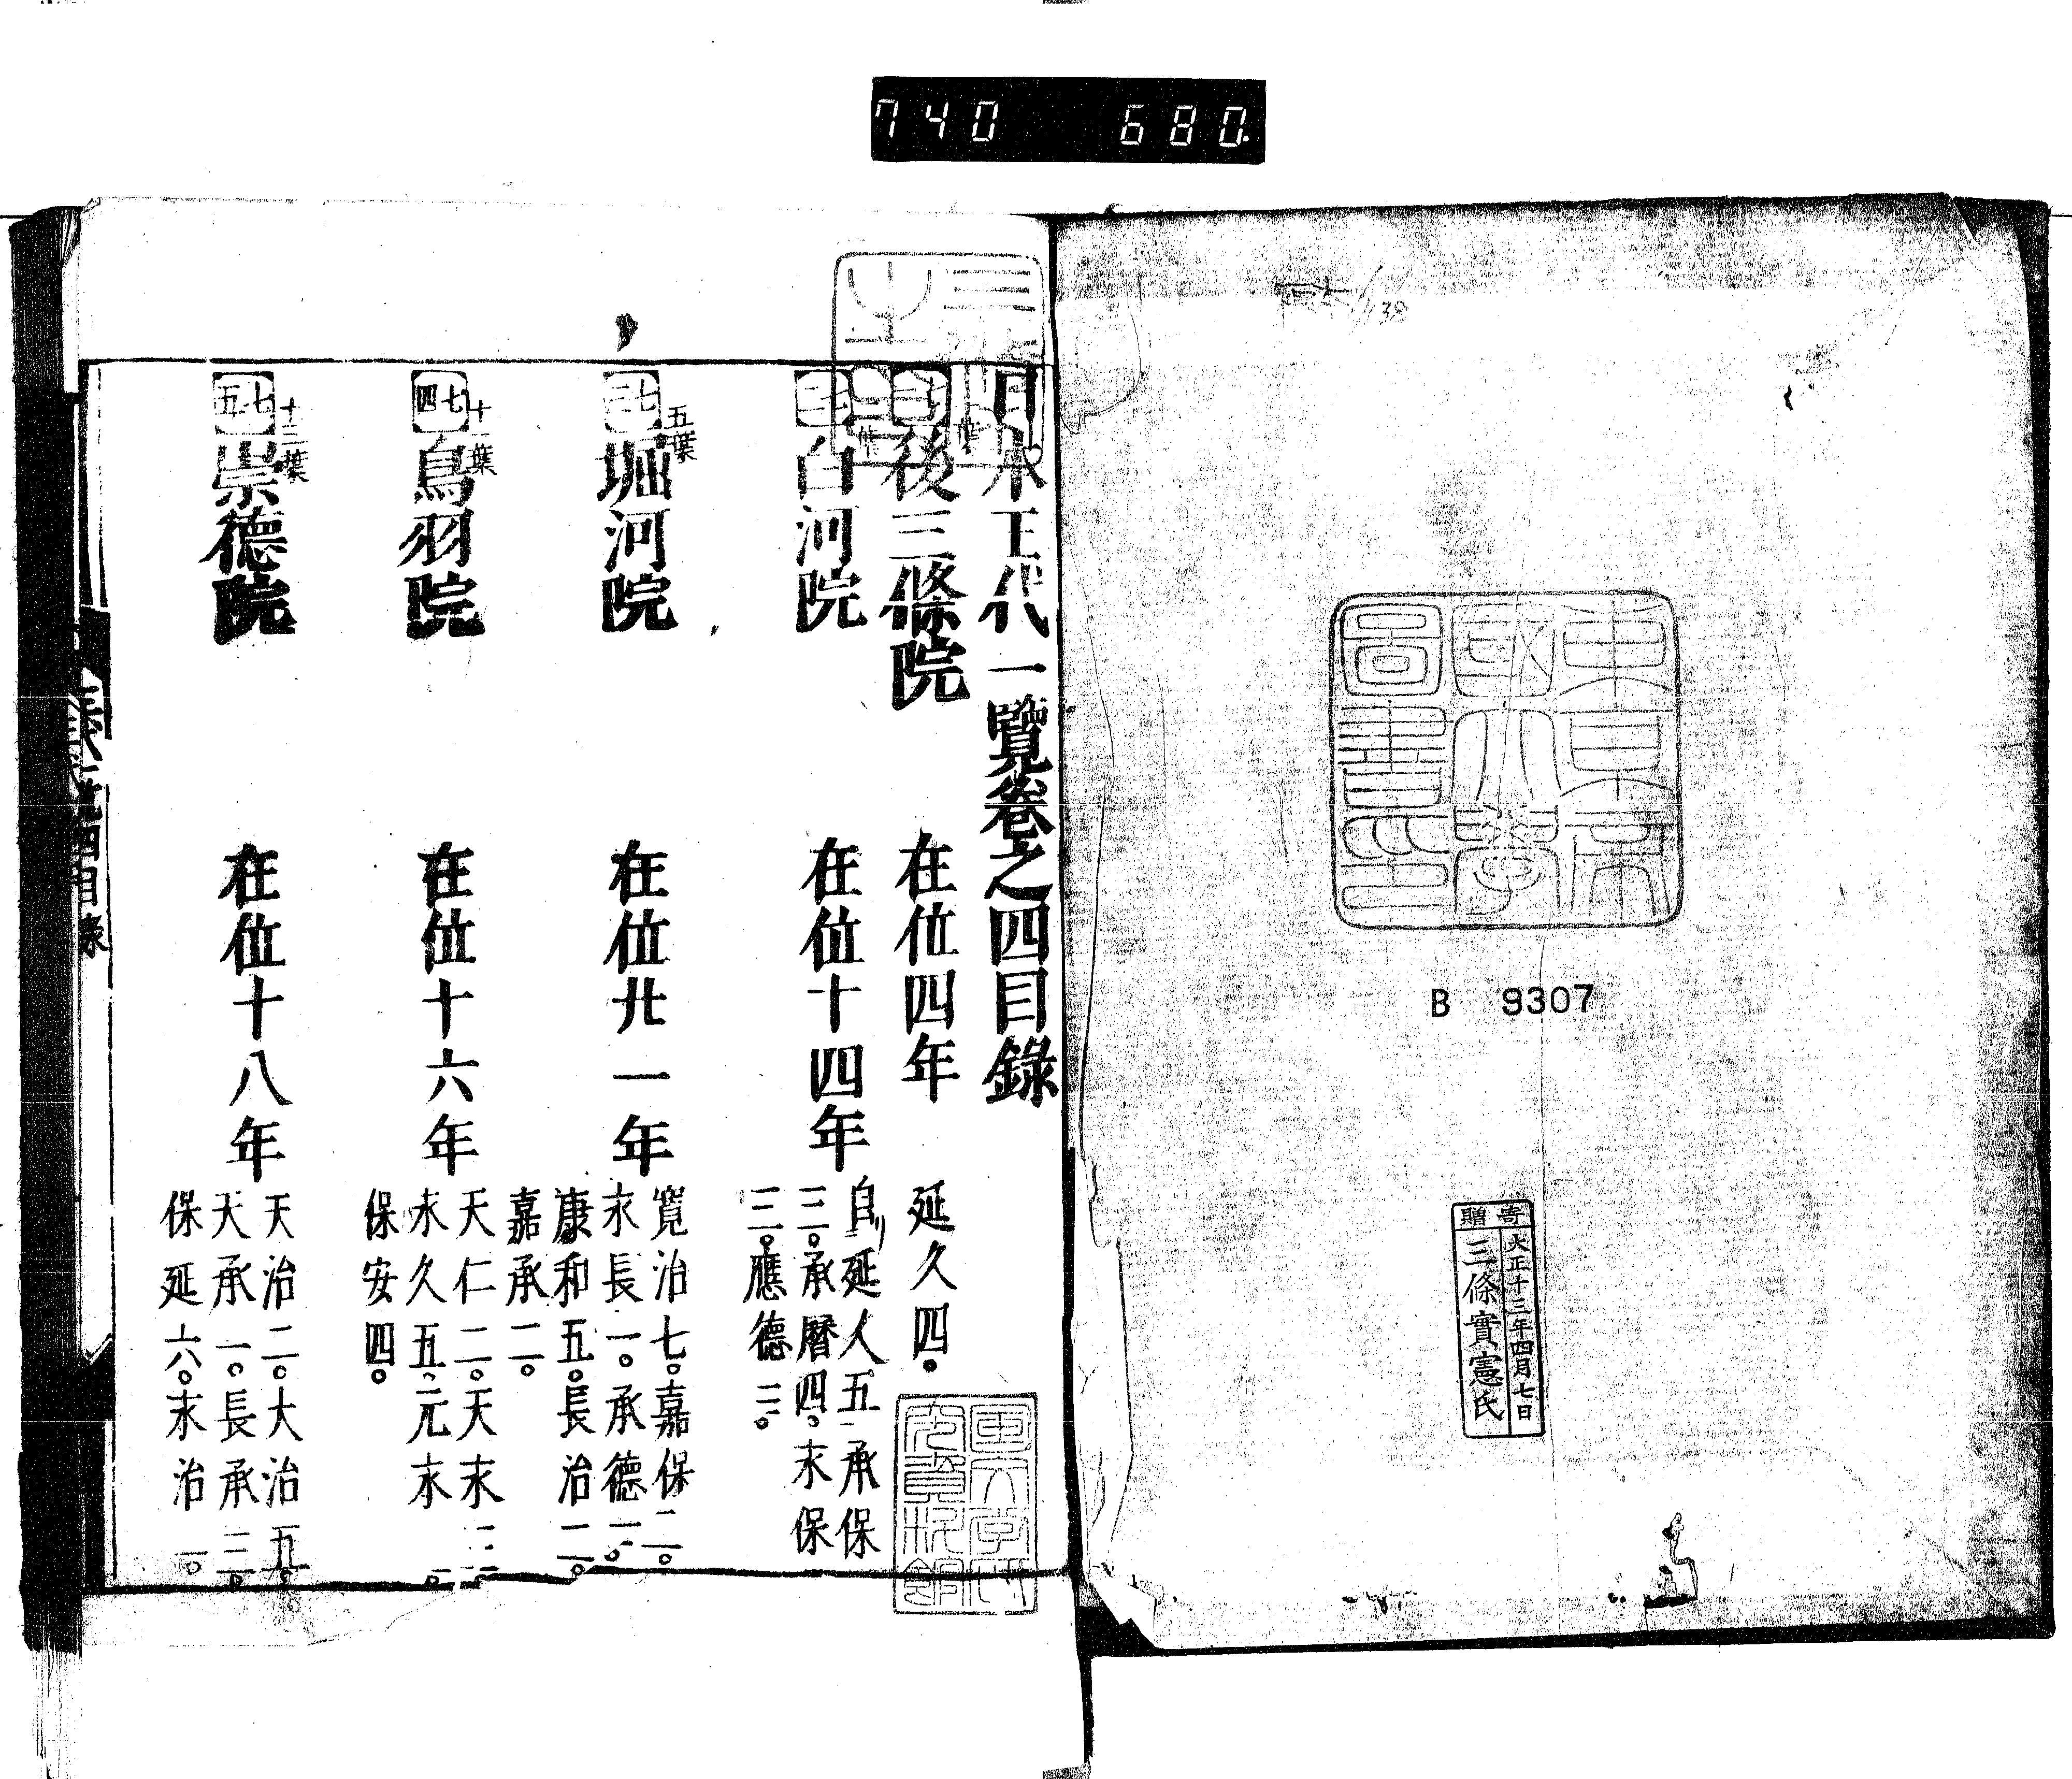 740 680.
東京帝
國大學
圖書印
B 9307
寄贈
大正十三年四月七日
三條實憲氏
日本王代一覽卷之四目錄
後三條院 在位四年 延久四。
白河院 在位十四年
自延久五 承保
三。承曆四。永保
三。應德三。
五葉
七三 堀河院 在位廿一年
寬治七。嘉保二。
永長一。承德二。
康和五。長治二。
嘉承二。
十一葉
七四 鳥羽院 在位十六年
天仁二。天永三
永久五。元永二。
保安四。
十三葉
七五 崇德院 在位十八年
天治二。大治五。
天承一。長承三。
保延六。永治一。
四目錄